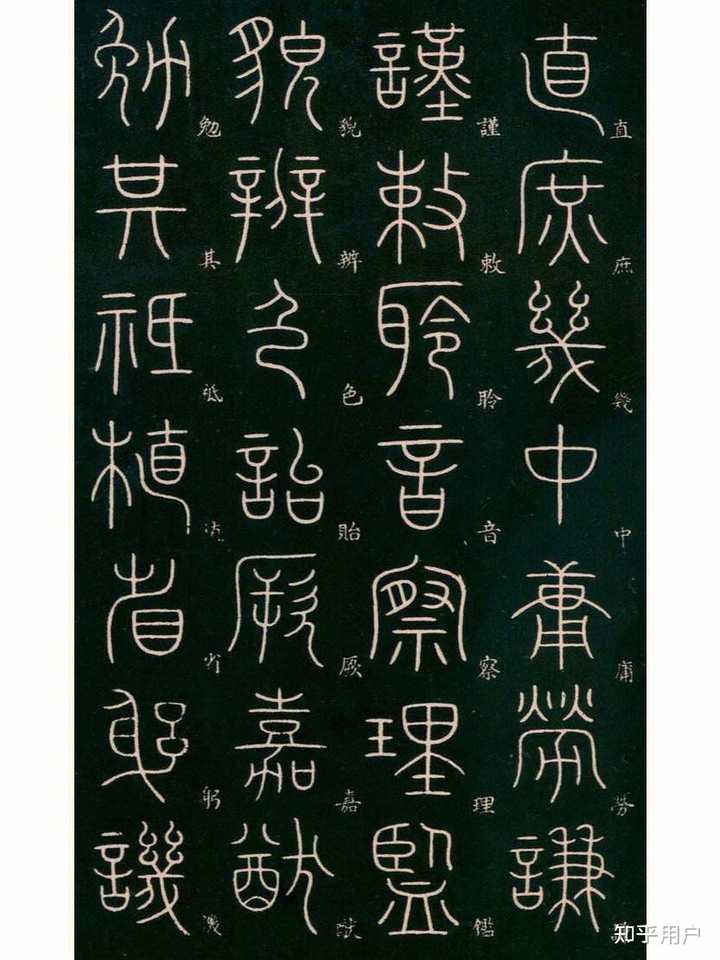 直庶幾中庸勞謙
直庶幾中庸勞
謹敕聆音察理監
謹敕聆音察理鑑
貌辨色詒厥嘉猷
貌辨色貽厥嘉猷
勉其祗植省躬譏
勉其祗植省躬譏
知乎用户